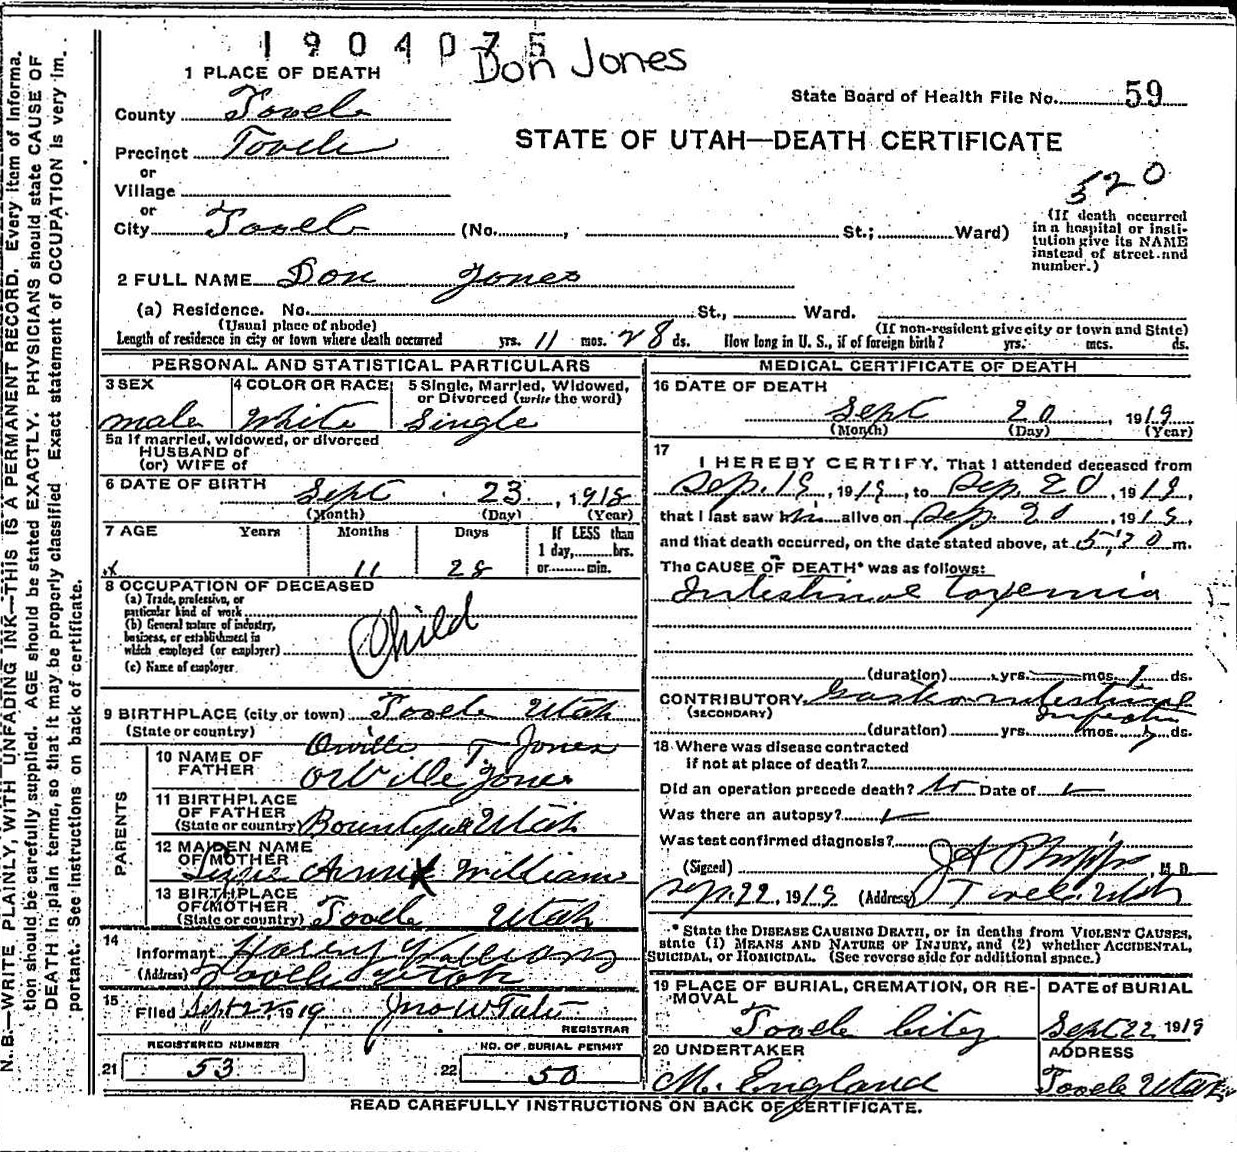 1904075
Don Jones
1 PLACE OF DEATH
State Board of Health File No. 59
County Tooele
STATE OF UTAH—DEATH CERTIFICATE
Precinct Tooele
or
Village
520
or
City Tooele (No. , St.; Ward)
(If death occurred
in a hospital or insti-
tution give its NAME
instead of street and
number.)
2 FULL NAME Don Jones
(a) Residence. No. St., Ward.
(Usual place of abode) (If non-resident give city or town and State)
Length of residence in city or town where death occurred yrs. 11 mos. 28 ds. How long in U. S., if of foreign birth? yrs. mos. ds.
PERSONAL AND STATISTICAL PARTICULARS
3 SEX
male
4 COLOR OR RACE
White
5 Single, Married, Widowed,
or Divorced (write the word)
Single
5a If married, widowed, or divorced
HUSBAND of
(or) WIFE of
6 DATE OF BIRTH
Sept 23, 1918
(Month) (Day) (Year)
7 AGE Years Months Days If LESS than
1 day, hrs.
or min.
x 11 28
8 OCCUPATION OF DECEASED
(a) Trade, profession, or
particular kind of work
(b) General nature of industry,
business, or establishment in
which employed (or employer)
(c) Name of employer
Child
9 BIRTHPLACE (city or town) Tooele Utah
(State or country)
PARENTS
Orville T Jones
10 NAME OF
FATHER Orville Jones
11 BIRTHPLACE
OF FATHER
(State or country) Bountiful Utah
12 MAIDEN NAME
OF MOTHER
Lizzie Annie Williams
13 BIRTHPLACE
OF MOTHER
(State or country) Tooele Utah
14
Informant
(Address) Tooele Utah
15
Filed Sept 22 1919 Jno W Tate
REGISTRAR
REGISTERED NUMBER NO. OF BURIAL PERMIT
21 53 22 50
MEDICAL CERTIFICATE OF DEATH
16 DATE OF DEATH
Sept 20, 1919
(Month) (Day) (Year)
17
I HEREBY CERTIFY, That I attended deceased from
Sep. 19, 1919, to Sep. 20, 1919,
that I last saw him alive on Sep. 20, 1919,
and that death occurred, on the date stated above, at 5:20 m.
The CAUSE OF DEATH* was as follows:
Intestinal toxemia
(duration) yrs. mos. 1 ds.
CONTRIBUTORY Gastrointestinal
(SECONDARY) Infection
(duration) yrs. mos. ds.
18 Where was disease contracted
if not at place of death?
Did an operation precede death? No Date of
Was there an autopsy?
Was test confirmed diagnosis?
(Signed) J A Phipps, M D
Sep. 22, 1919 (Address) Tooele Utah
* State the DISEASE CAUSING DEATH, or in deaths from VIOLENT CAUSES,
state (1) MEANS AND NATURE OF INJURY, and (2) whether ACCIDENTAL,
SUICIDAL, or HOMICIDAL. (See reverse side for additional space.)
19 PLACE OF BURIAL, CREMATION, OR RE-
MOVAL
Tooele City
DATE of BURIAL
Sept 22 1919
20 UNDERTAKER
M. England
ADDRESS
Tooele Utah
READ CAREFULLY INSTRUCTIONS ON BACK OF CERTIFICATE.
N. B.—WRITE PLAINLY, WITH UNFADING INK—THIS IS A PERMANENT RECORD. Every item of informa-
tion should be carefully supplied. AGE should be stated EXACTLY. PHYSICIANS should state CAUSE OF
DEATH in plain terms, so that it may be properly classified. Exact statement of OCCUPATION is very im-
portant. See instructions on back of certificate.